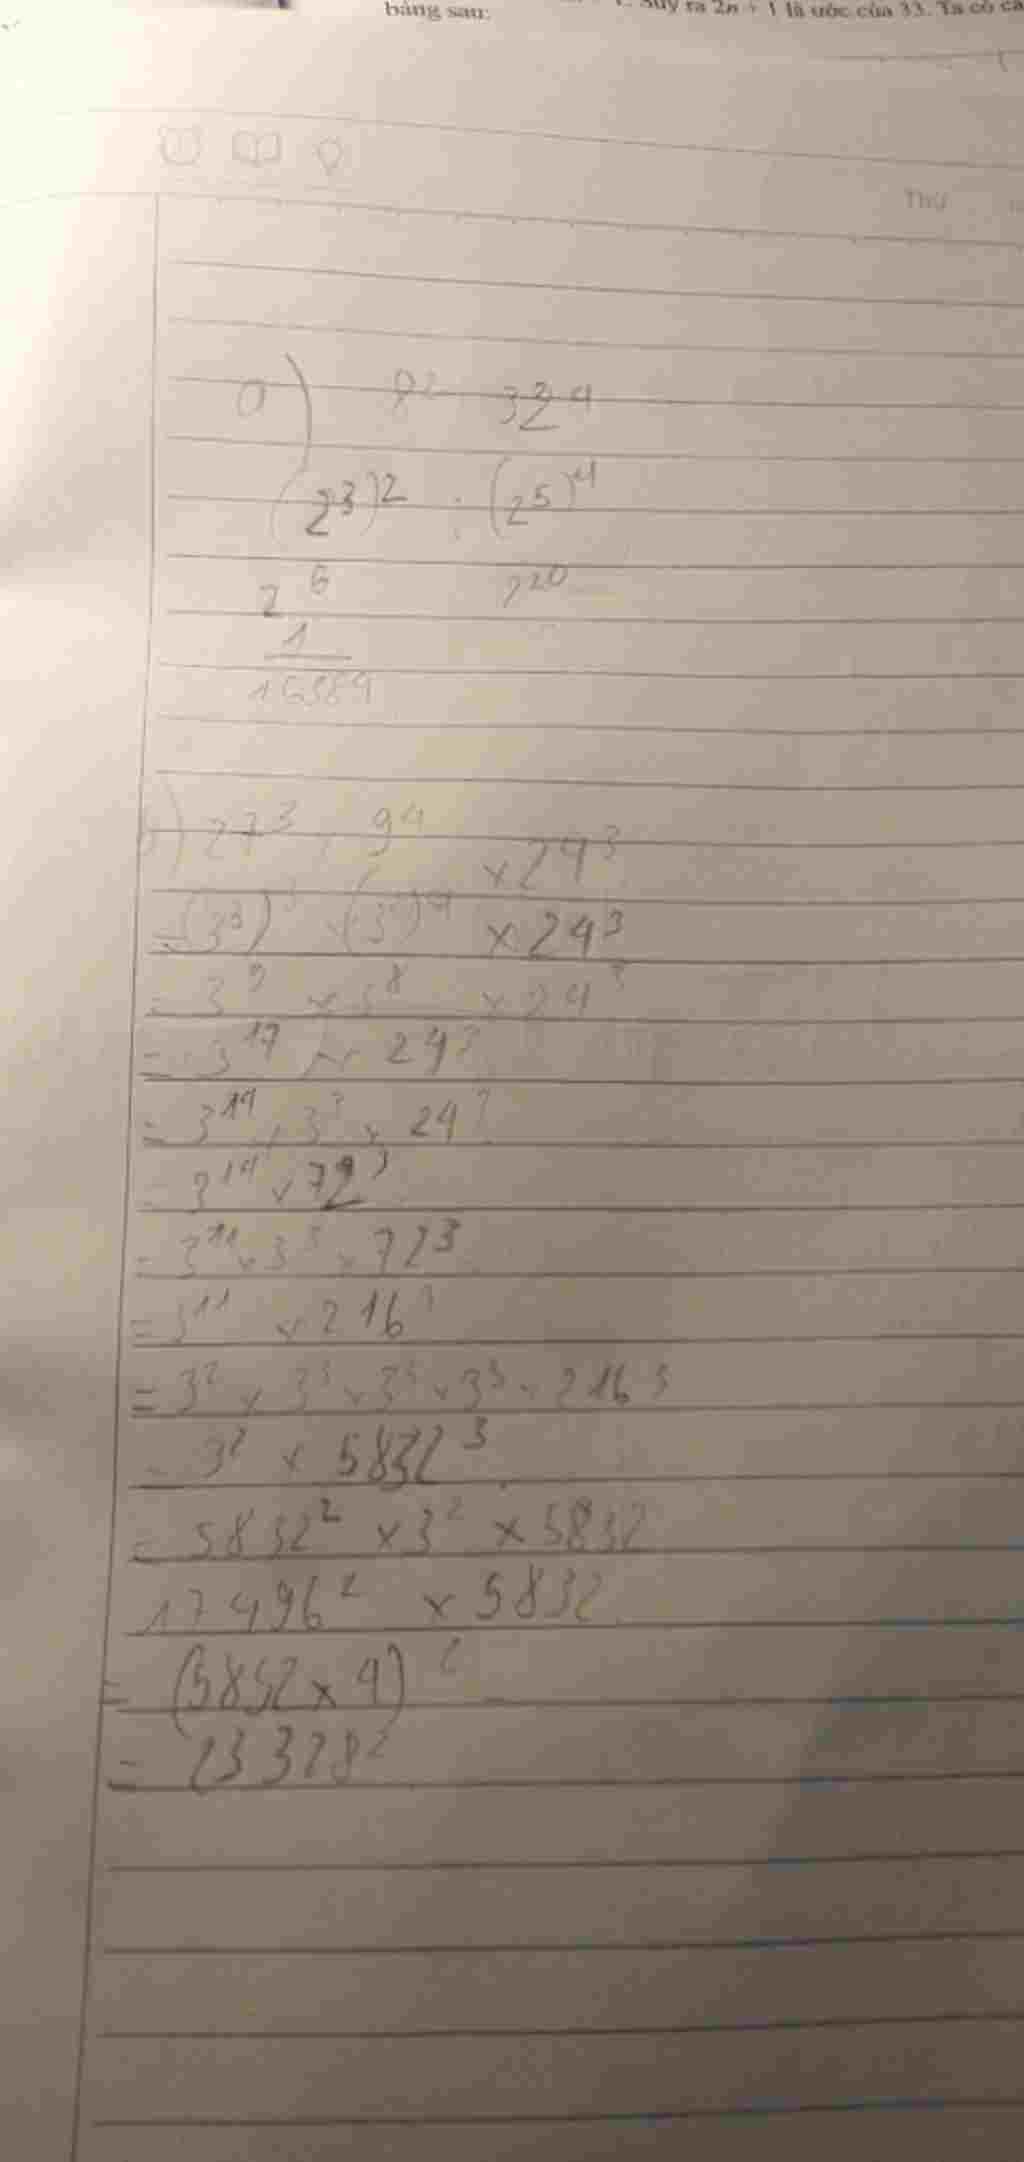 bảng sau:
Suy ra 2n + 1 là ước của 33. Ta có
Thứ
a) 8² 32⁴
(2³)² : (2⁵)⁴
2⁶ 2²⁰
1
16384
b) 27³ . 9⁴ × 24³
= (3³)³ × (3²)⁴ × 24³
= 3⁹ × 3⁸ × 24³
= 3¹⁷ × 24³
= 3¹⁴ × 3³ × 24³
= 3¹⁴ × 72³
= 3¹¹ × 3³ × 72³
= 3¹¹ × 216³
= 3² × 3³ × 3³ × 3³ × 216³
= 3² × 5832³
= 5832² × 3² × 5832
17496² × 5832
= (5832 × 4)²
= 23328²